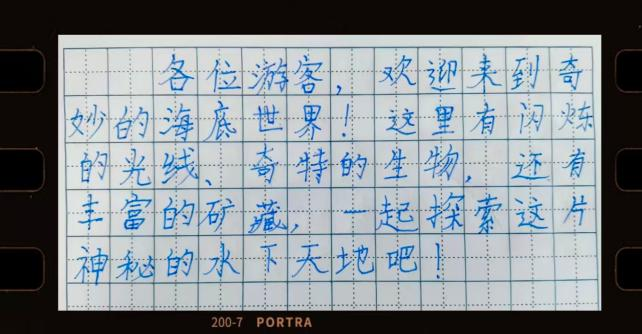 各位游客，欢迎来到奇
妙的海底世界！这里有闪烁
的光线、奇特的生物，还有
丰富的矿藏，一起探索这片
神秘的水下天地吧！
200-7 PORTRA